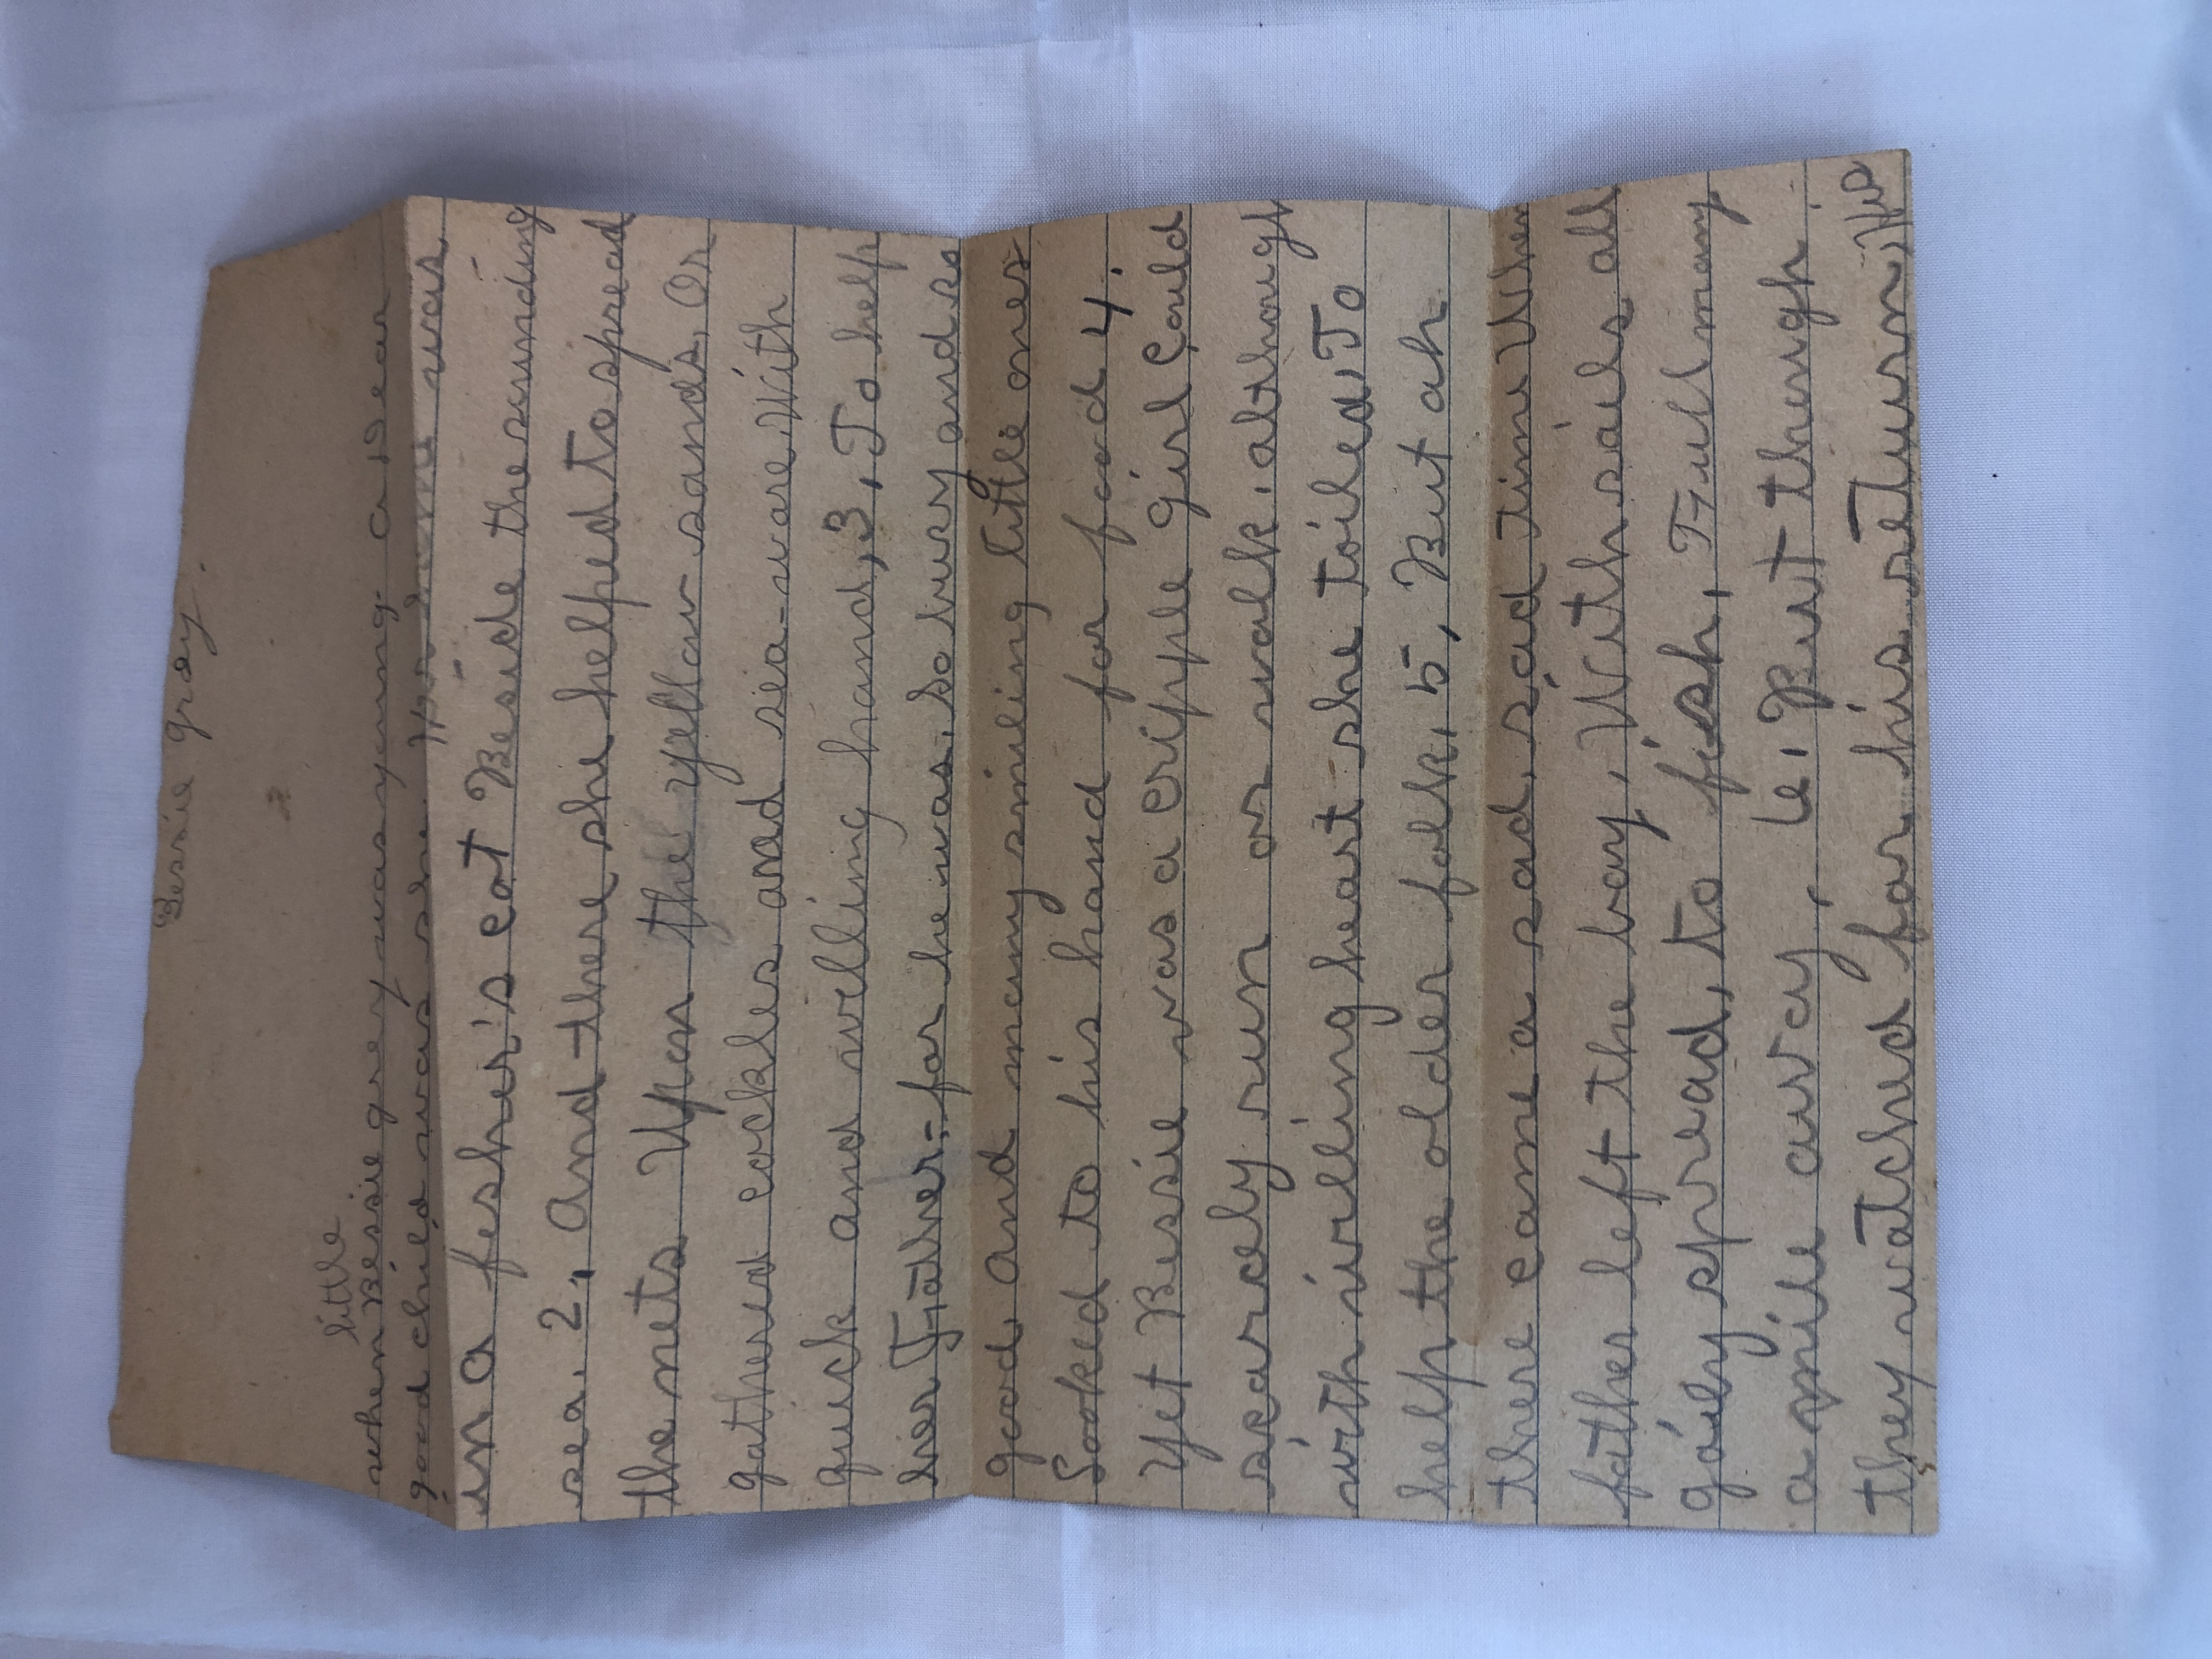 Bessie gray.
little
when Bessie grey was young. a Dear
good child was she. Her home was
in a fesher's cot Beside the sounding
sea. 2, And there she helped to spread
the nets Upon the yellow sands, Or
gathered cockles and sea-ware, With
quick and willing hand, 3, To help
her Father,- for he was. So busy and so
good, And many smiling little ones
Looked to his hand for food 4.
Yet Bessie was a cripple Girl Could
scarcely run or walk, although
with willing heart she toiled, To
help the older folk, 5, But ah
there came a sad, sad time When
father left the bay, With sails all
gaily spread, to fish, Full many
a mile away, 6, But though
they watched for his return, His